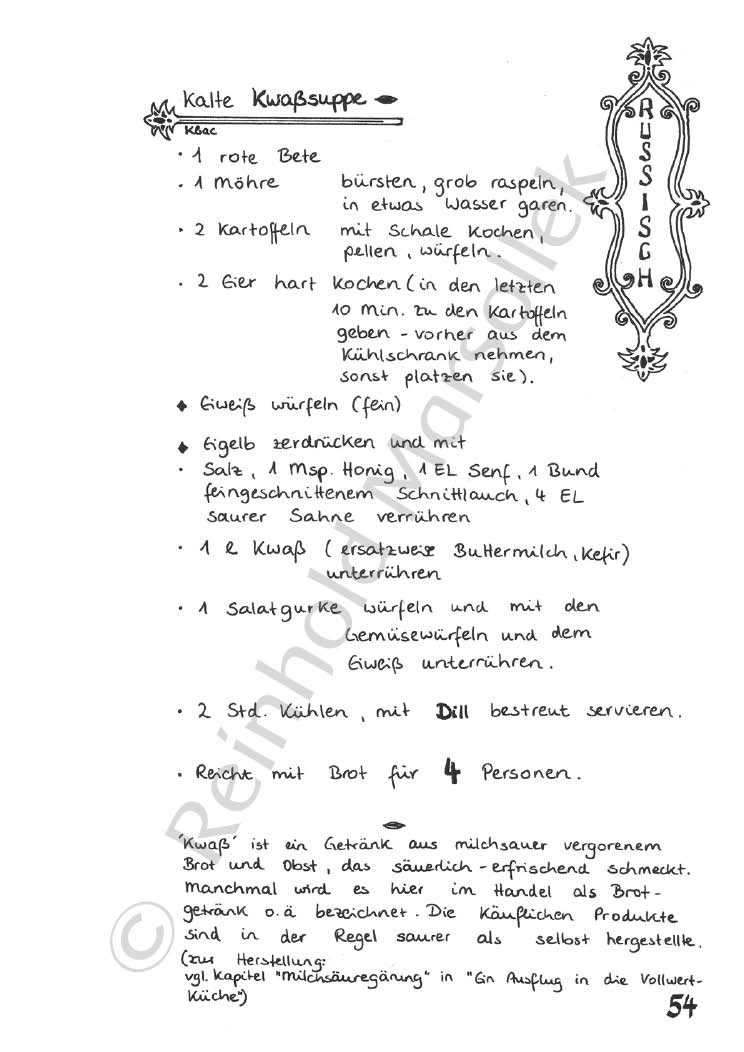 Kalte Kwaßsuppe
Квас
RUSSISCH
· 1 rote Bete
· 1 Möhre bürsten, grob raspeln,
in etwas Wasser garen.
· 2 Kartoffeln mit Schale kochen,
pellen, würfeln.
· 2 Eier hart kochen (in den letzten
10 Min. zu den Kartoffeln
geben - vorher aus dem
Kühlschrank nehmen,
sonst platzen sie).
◆ Eiweiß würfeln (fein)
◆ Eigelb zerdrücken und mit
· Salz, 1 Msp. Honig, 1 EL Senf, 1 Bund
feingeschnittenem Schnittlauch, 4 EL
saurer Sahne verrühren
· 1 l Kwaß (ersatzweise Buttermilch, Kefir)
unterrühren
· 1 Salatgurke würfeln und mit den
Gemüsewürfeln und dem
Eiweiß unterrühren.
· 2 Std. kühlen, mit Dill bestreut servieren.
· Reicht mit Brot für 4 Personen.
'Kwaß' ist ein Getränk aus milchsauer vergorenem
Brot und Obst, das säuerlich-erfrischend schmeckt.
Manchmal wird es hier im Handel als Brot-
getränk o.ä bezeichnet. Die käuflichen Produkte
sind in der Regel saurer als selbst hergestellte.
(zur Herstellung:
vgl. Kapitel "Milchsäuregärung" in "Ein Ausflug in die Vollwert-
küche")
54
© Reinhold Marsollek